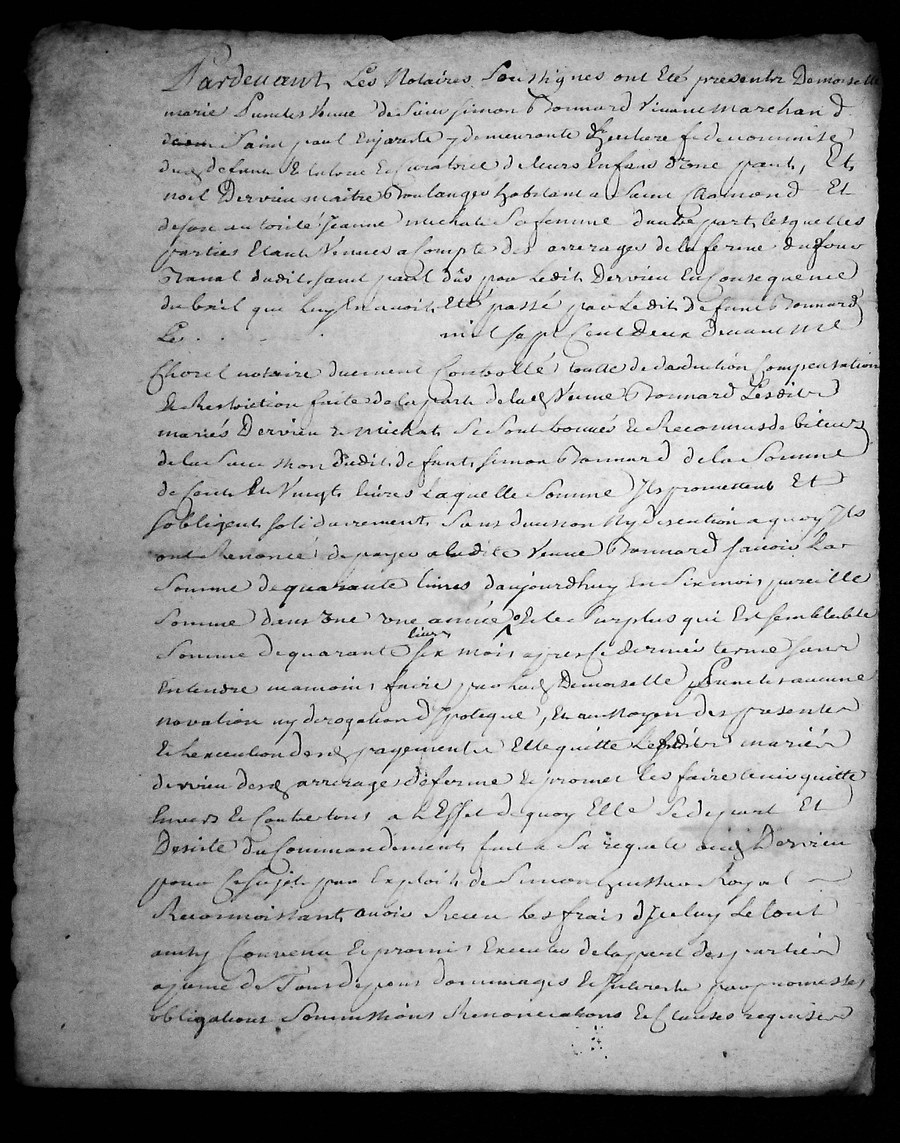 Pardevant Les Notaires Soussignes ont Eté presentz Demoiselle
marie veuve de Sieur simon Bonnard vivant marchand
Saint paul En jareste y demeurante fidecommise
dud defunt Et tutrice Et Curatrice de leurs Enfans d'une part, Et
noël Dervieu maitre Boulanger habitant a Saint Chamond Et
de son autorité Jeanne michal Sa femme dautre part, lesquelles
parties Etant Venues a Compte des arrerages de la ferme du four
Banal dudit saint paul dûs par Ledit Dervieu En Consequence
du bail que luy En avoit Eté passé par Ledit defunt Bonnard
Le . . . mil sept Cent Deux devant Me
Chorel notaire duement Controllé toutte deduction Compensation
Et Restriction faite de la part de lad Veuve Bonnard Lesditz
mariés Dervieu & michal Se Sont Recconnus debiteurs
de la Succession dudit defunt simon Bonnard de la Somme
de Cent Et Vingt livres Laquelle Somme Ils promettent Et
sobligent solidairement Sans division Ny discution a quoy Ils
ont Renoncé de payer a ladite Veuve Bonnard scavoir La
Somme de quarante livres d'aujourdhuy En Six mois pareille
Somme dans une année Et le Surplus qui Est semblable
Somme de quarante livres six mois apres Ce dernier terme sans
Entendre neamoins faire par lad Demoiselle aucune
novation ny derogation d'ypoteque, Et au Moyen des presentes
Et l'execution desd payements Elle quitte Lesditz mariés
dervieu desd arrerages de ferme Et promet les faire tenir quitte
Envers Et Contre tous a L'Effet de quoy Elle Se depart Et
Desiste du Commandement fait a Sa requete aud Dervieu
pour Ce sujet par Exploit de Simon Royal
Reconnoissant avoir Receu Les frais d'Jceluy Le tout
ainsy Convenu Et promis Executer de la part des parties
a peine de Tous depens dommages Et Interests par promesses
obligations Soumissions Renonciations & Clauses requises